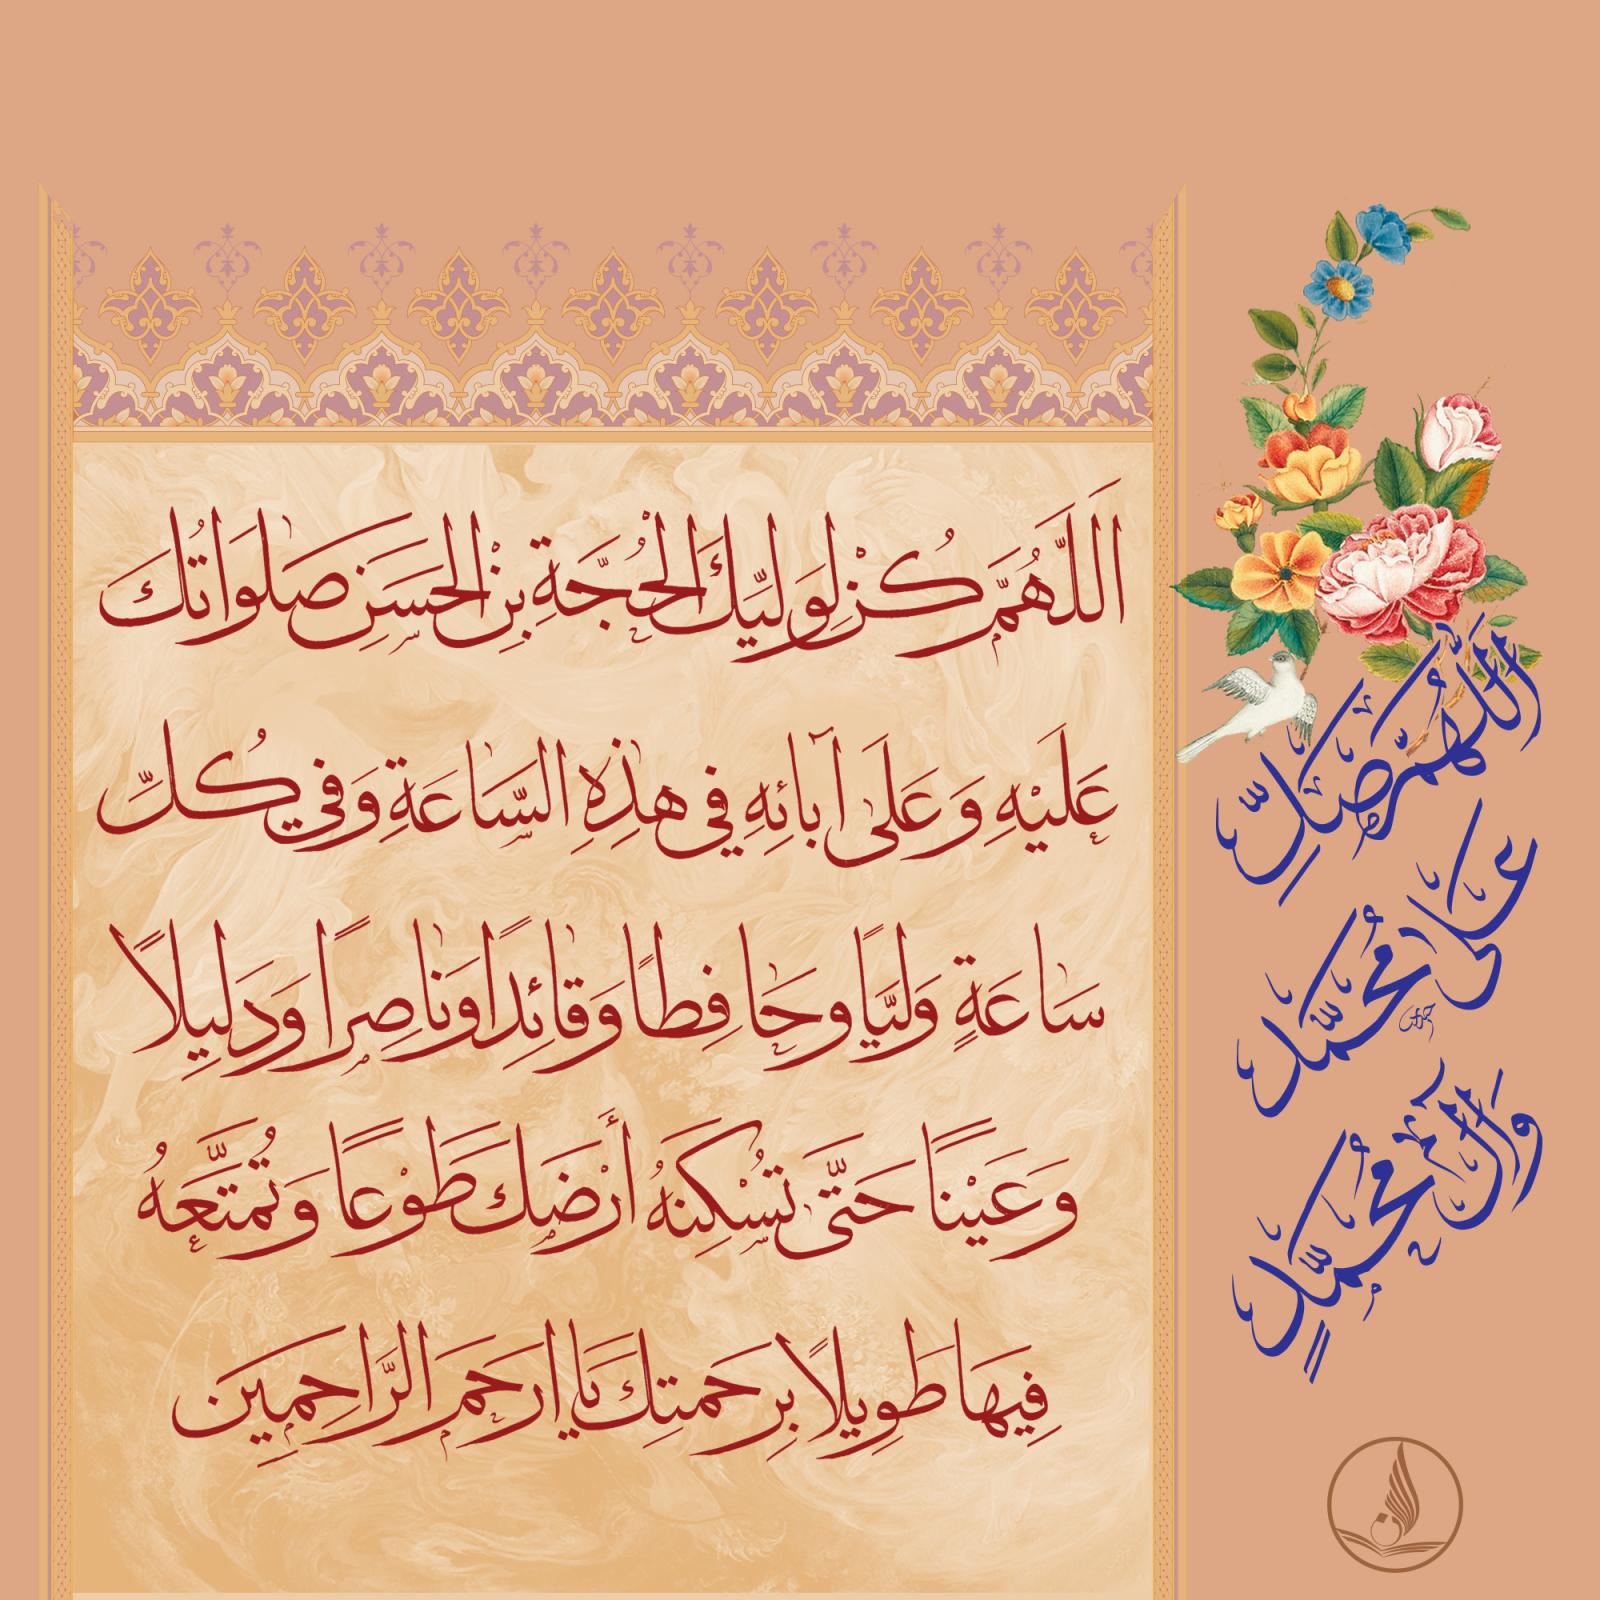 اَللّهُمَّ كُنْ لِوَلِيِّكَ الْحُجَّةِ بْنِ الْحَسَنِ صَلَواتُكَ
عَلَيْهِ وَعَلى آبائِهِ في هذِهِ السّاعَةِ وَفي كُلِّ
ساعَةٍ وَلِيًّا وَحافِظًا وَقائِدًا وَناصِرًا وَدَليلًا
وَعَيْنًا حَتّى تُسْكِنَهُ أَرْضَكَ طَوْعًا وَتُمَتِّعَهُ
فيها طَويلًا بِرَحمَتِكَ يا اَرحَمَ الرّاحِمينَ
اَللّهُمَّ صَلِّ
عَلى مُحَمَّد
وَآلِ مُحَمَّدٍ